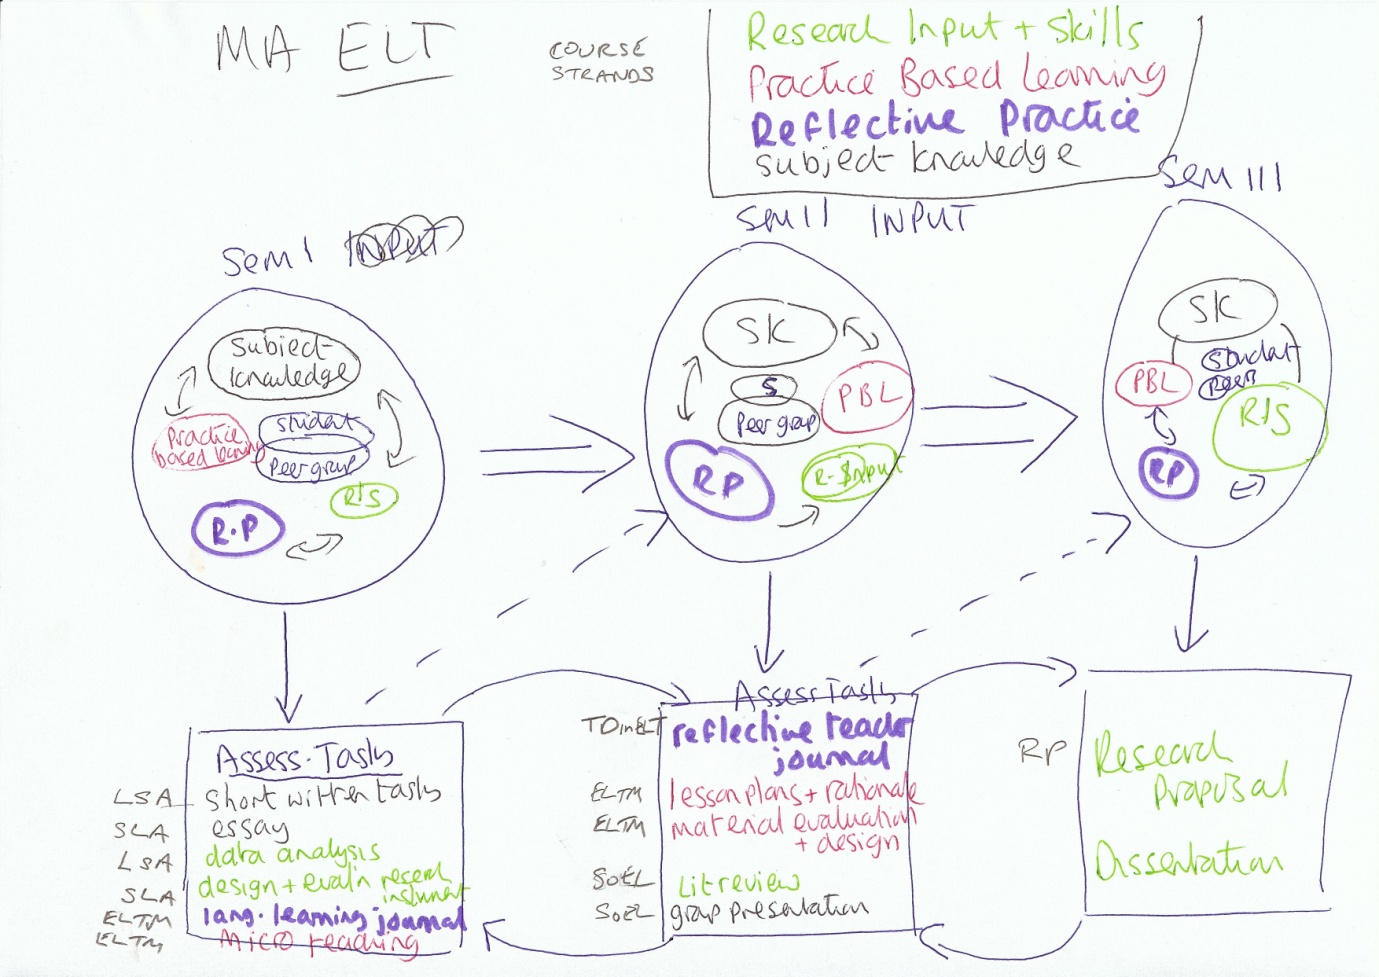 MA ELT
COURSE
STRANDS
Research Input + Skills
Practice Based Learning
Reflective Practice
Subject knowledge
Sem I INPUT
Subject
knowledge
Practice
based learning
Student
Peer group
RIS
R.P
Sem II INPUT
SK
S
Peer group
PBL
RP
R-SInput
Sem III
SK
PBL
Student
Peer
RIS
RP
Assess. Tasks
LSA short written tasks
SLA essay
LSA data analysis
SLA design + eval'n research
instrument
ELTM lang. learning journal
ELTM Micro teaching
Assess Tasks
TDinELT reflective reader
journal
ELTM lesson plans + rationale
ELTM material evaluation
+ design
SoEL Lit review
SoEL group presentation
RP Research
Proposal
Dissertation